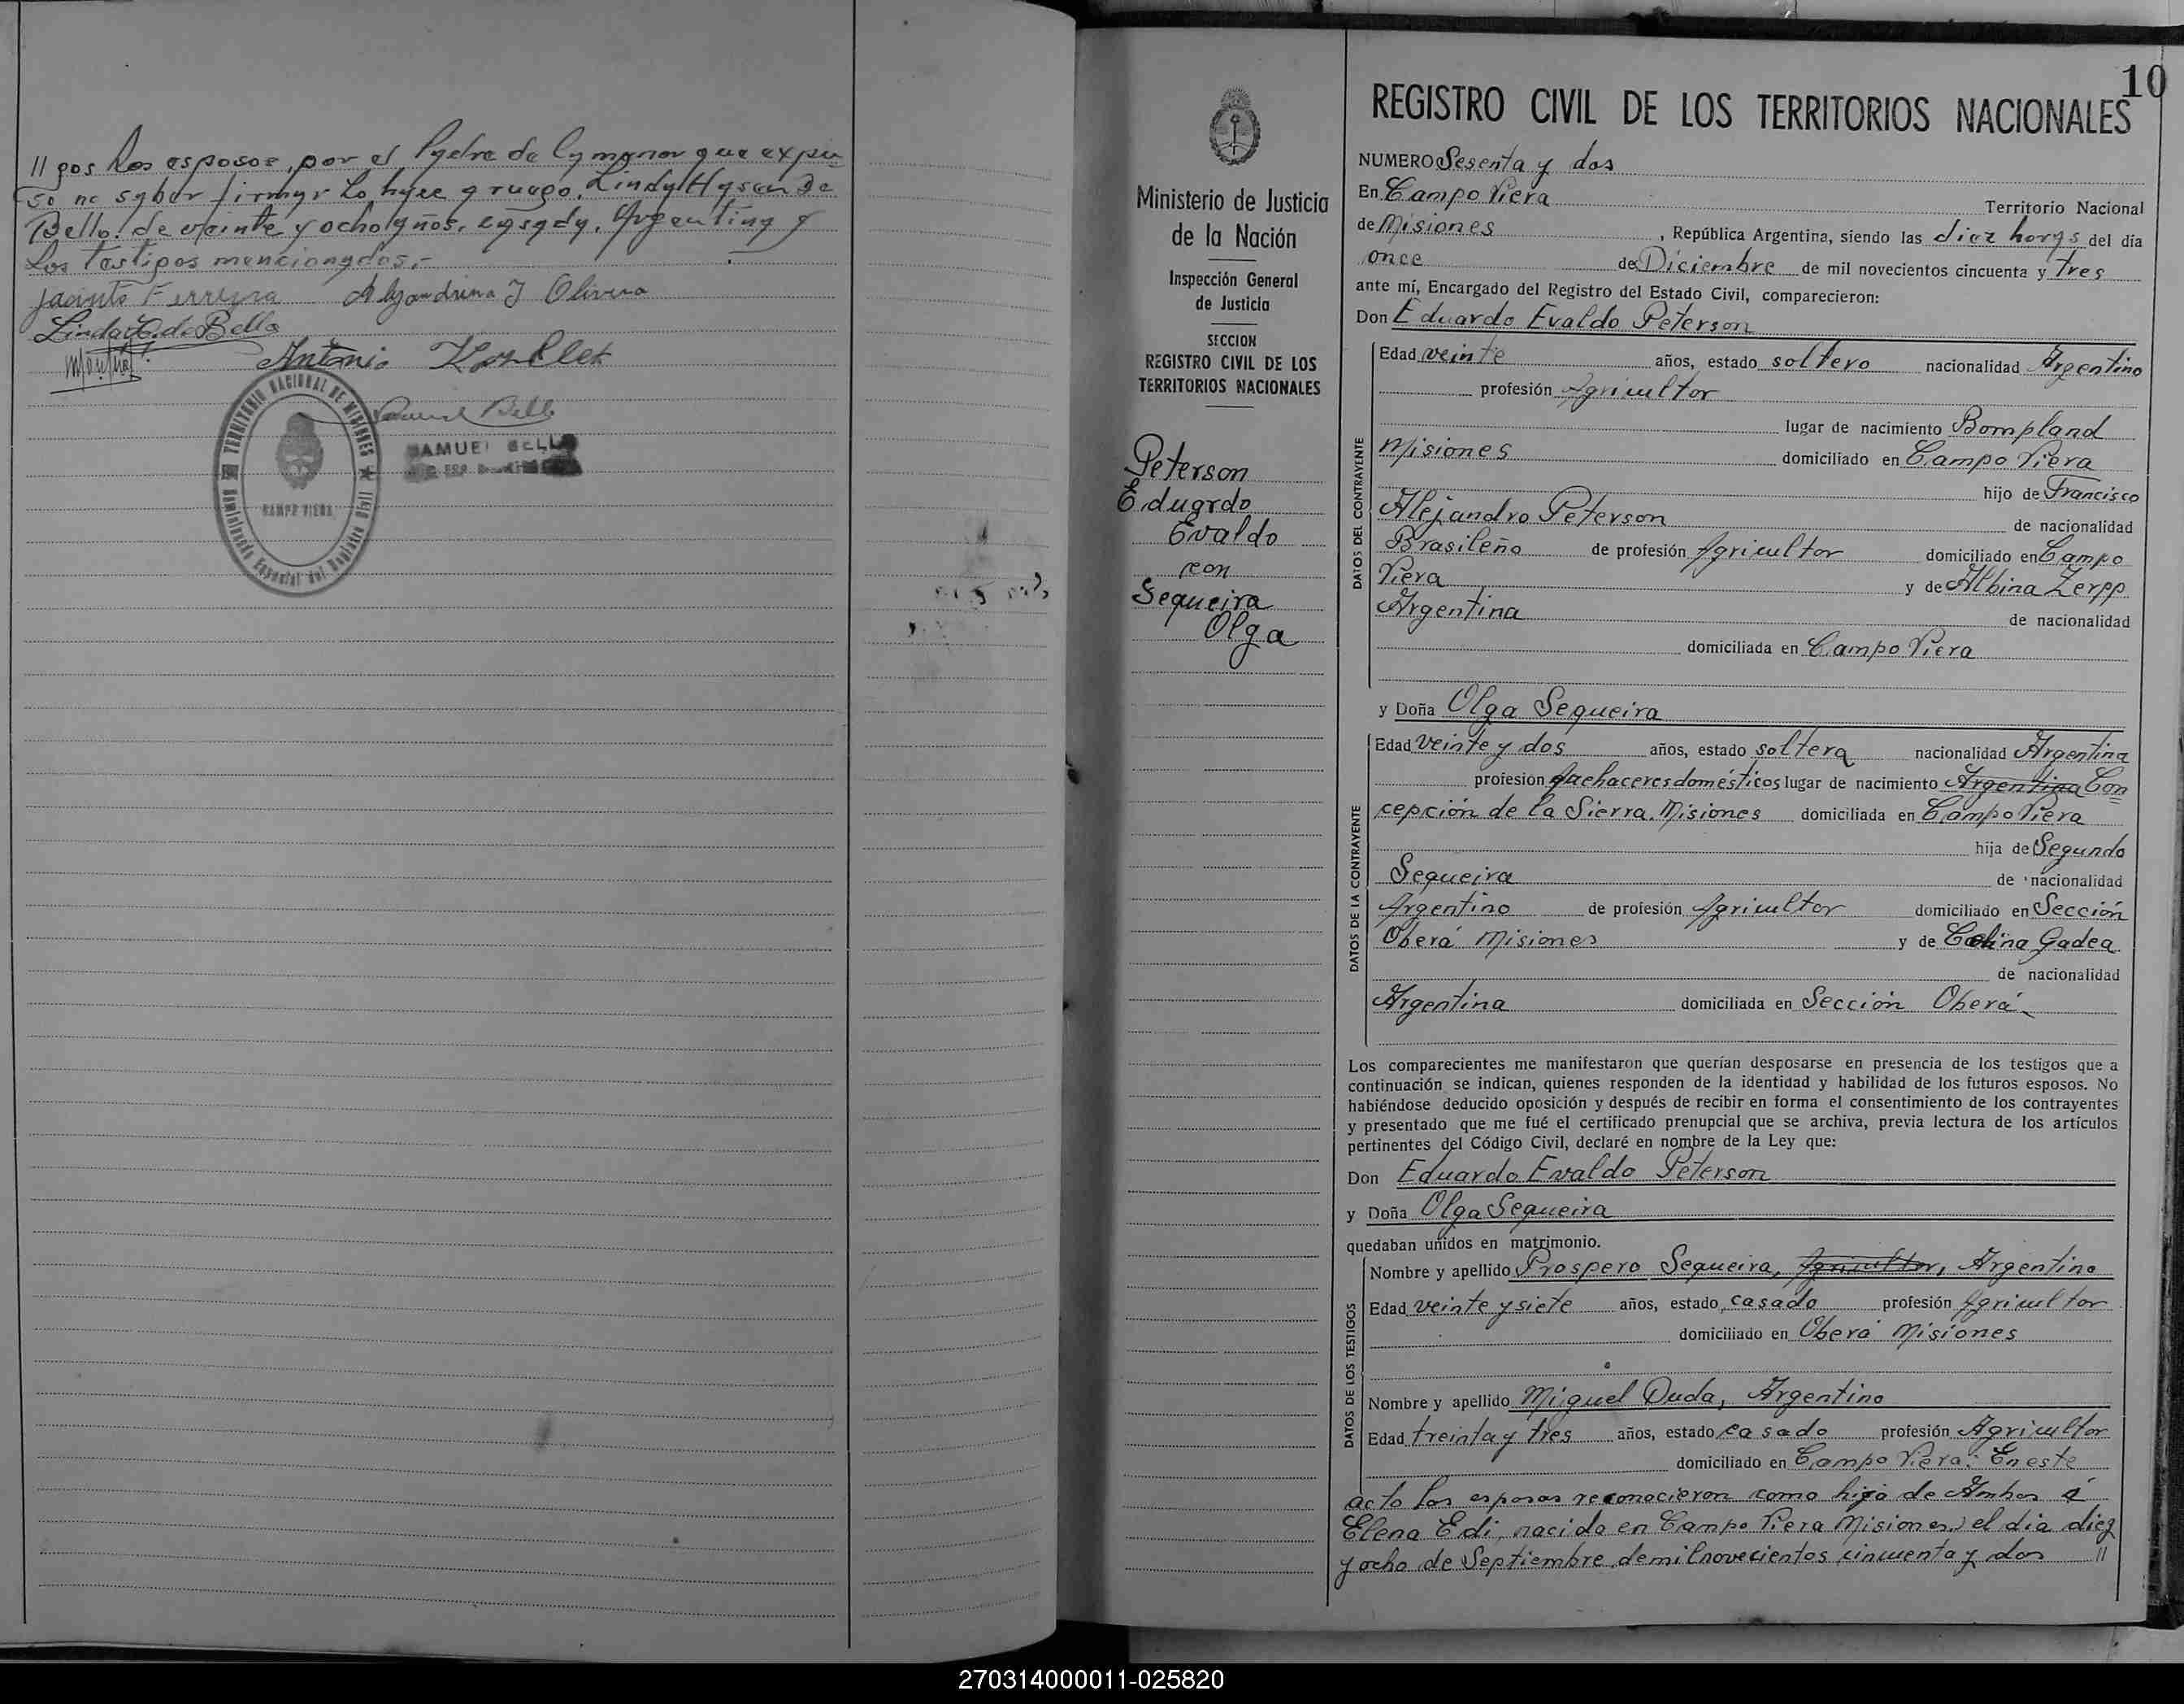 // gos los esposos, por el Padre de la menor que expu-
so no saber firmar lo hace a ruego. Linda Hysen de
Bello. de veinte y ocho años, casada, Argentina y
los testigos mencionados.-
Jacinto Ferreyra Alejandrina J Olivera
Linda H. de Bello
Antonio
TERRITORIO NACIONAL DE MISIONES
CAMPO VIERA
Registro Civil
Samuel Bello
SAMUEL BELLO
10
Ministerio de Justicia
de la Nación
Inspección General
de Justicia
SECCION
REGISTRO CIVIL DE LOS
TERRITORIOS NACIONALES
Peterson
Eduardo
Evaldo
con
Sequeira
Olga
REGISTRO CIVIL DE LOS TERRITORIOS NACIONALES
NUMERO Sesenta y dos
En Campo Viera Territorio Nacional
de Misiones, República Argentina, siendo las diez horas del día
once de Diciembre de mil novecientos cincuenta y tres
ante mí, Encargado del Registro del Estado Civil, comparecieron:
Don Eduardo Evaldo Peterson
DATOS DEL CONTRAYENTE
Edad veinte años, estado soltero nacionalidad Argentino
profesión Agricultor
lugar de nacimiento Bompland
Misiones domiciliado en Campo Viera
hijo de Francisco
Alejandro Peterson de nacionalidad
Brasileño de profesión Agricultor domiciliado en Campo
Viera y de Albina Zerpp
Argentina de nacionalidad
domiciliada en Campo Viera
y Doña Olga Sequeira
DATOS DE LA CONTRAYENTE
Edad veinte y dos años, estado soltera nacionalidad Argentina
profesión quehaceres domésticos lugar de nacimiento Argentina Con
cepción de la Sierra. Misiones domiciliada en Campo Viera
hija de Segundo
Sequeira de nacionalidad
Argentino de profesión Agricultor domiciliado en Sección
Oberá Misiones y de Gadea
de nacionalidad
Argentina domiciliada en Sección Oberá
Los comparecientes me manifestaron que querían desposarse en presencia de los testigos que a
continuación se indican, quienes responden de la identidad y habilidad de los futuros esposos. No
habiéndose deducido oposición y después de recibir en forma el consentimiento de los contrayentes
y presentado que me fué el certificado prenupcial que se archiva, previa lectura de los artículos
pertinentes del Código Civil, declaré en nombre de la Ley que:
Don Eduardo Evaldo Peterson
y Doña Olga Sequeira
quedaban unidos en matrimonio.
DATOS DE LOS TESTIGOS
Nombre y apellido Prospero Sequeira, Agricultor, Argentino
Edad veinte y siete años, estado casado profesión Agricultor
domiciliado en Oberá Misiones
Nombre y apellido Miguel Duda, Argentino
Edad treinta y tres años, estado casado profesión Agricultor
domiciliado en Campo Viera. En este
acto los esposos reconocieron como hija de Ambos á
Elena Edi, nacida en Campo Viera Misiones.) el dia diez
y ocho de Septiembre de mil novecientos cincuenta y dos //
270314000011-025820